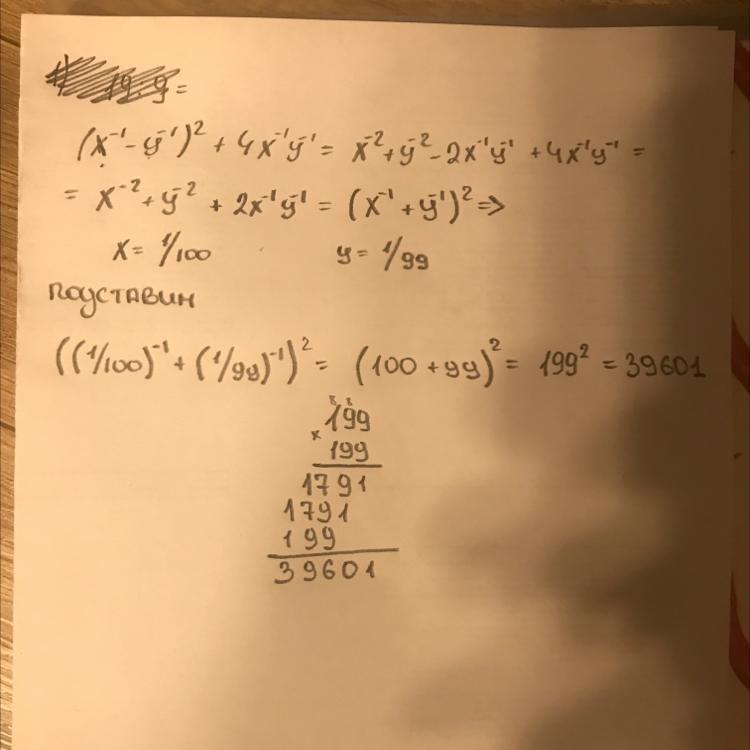 19:9=
(x⁻¹-y⁻¹)² + 4x⁻¹y⁻¹ = x⁻²+y⁻²-2x⁻¹y⁻¹ + 4x⁻¹y⁻¹ =
= x⁻²+y⁻² + 2x⁻¹y⁻¹ = (x⁻¹+y⁻¹)² ⇒
x= 1/100 y= 1/99
подставим
((1/100)⁻¹ + (1/99)⁻¹)² = (100 + 99)² = 199² = 39601
8 8
199
x
199
1791
1791
199
39601